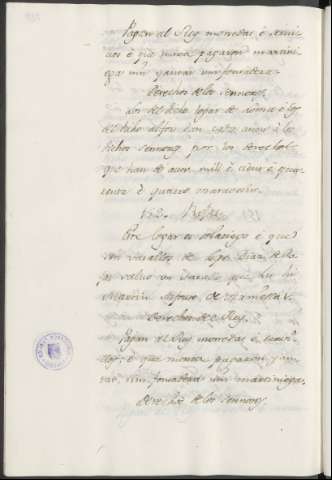 Pagan al Rey monedas e servi-
cios e que nunca pagaron martini-
ega nin yantar nin fonsadera.
Derechos de los Sennores.
del dicho logar de
del dicho Alfon cada anno a los
dichos sennores por los derechos
que han de aver mill e cient e
e quatro maravedis.
Este logar es solariego e que
son vasallos de Lope Diaz de Ro-
jas salvo un Vasallo que ha hi
Martin Alfonso de
Derechos del Rey.
Pagan al Rey monedas e servi-
cios, e que nunca pagaron yan-
tar, nin fonsadera nin martiniega.
Derechos de los Sennores